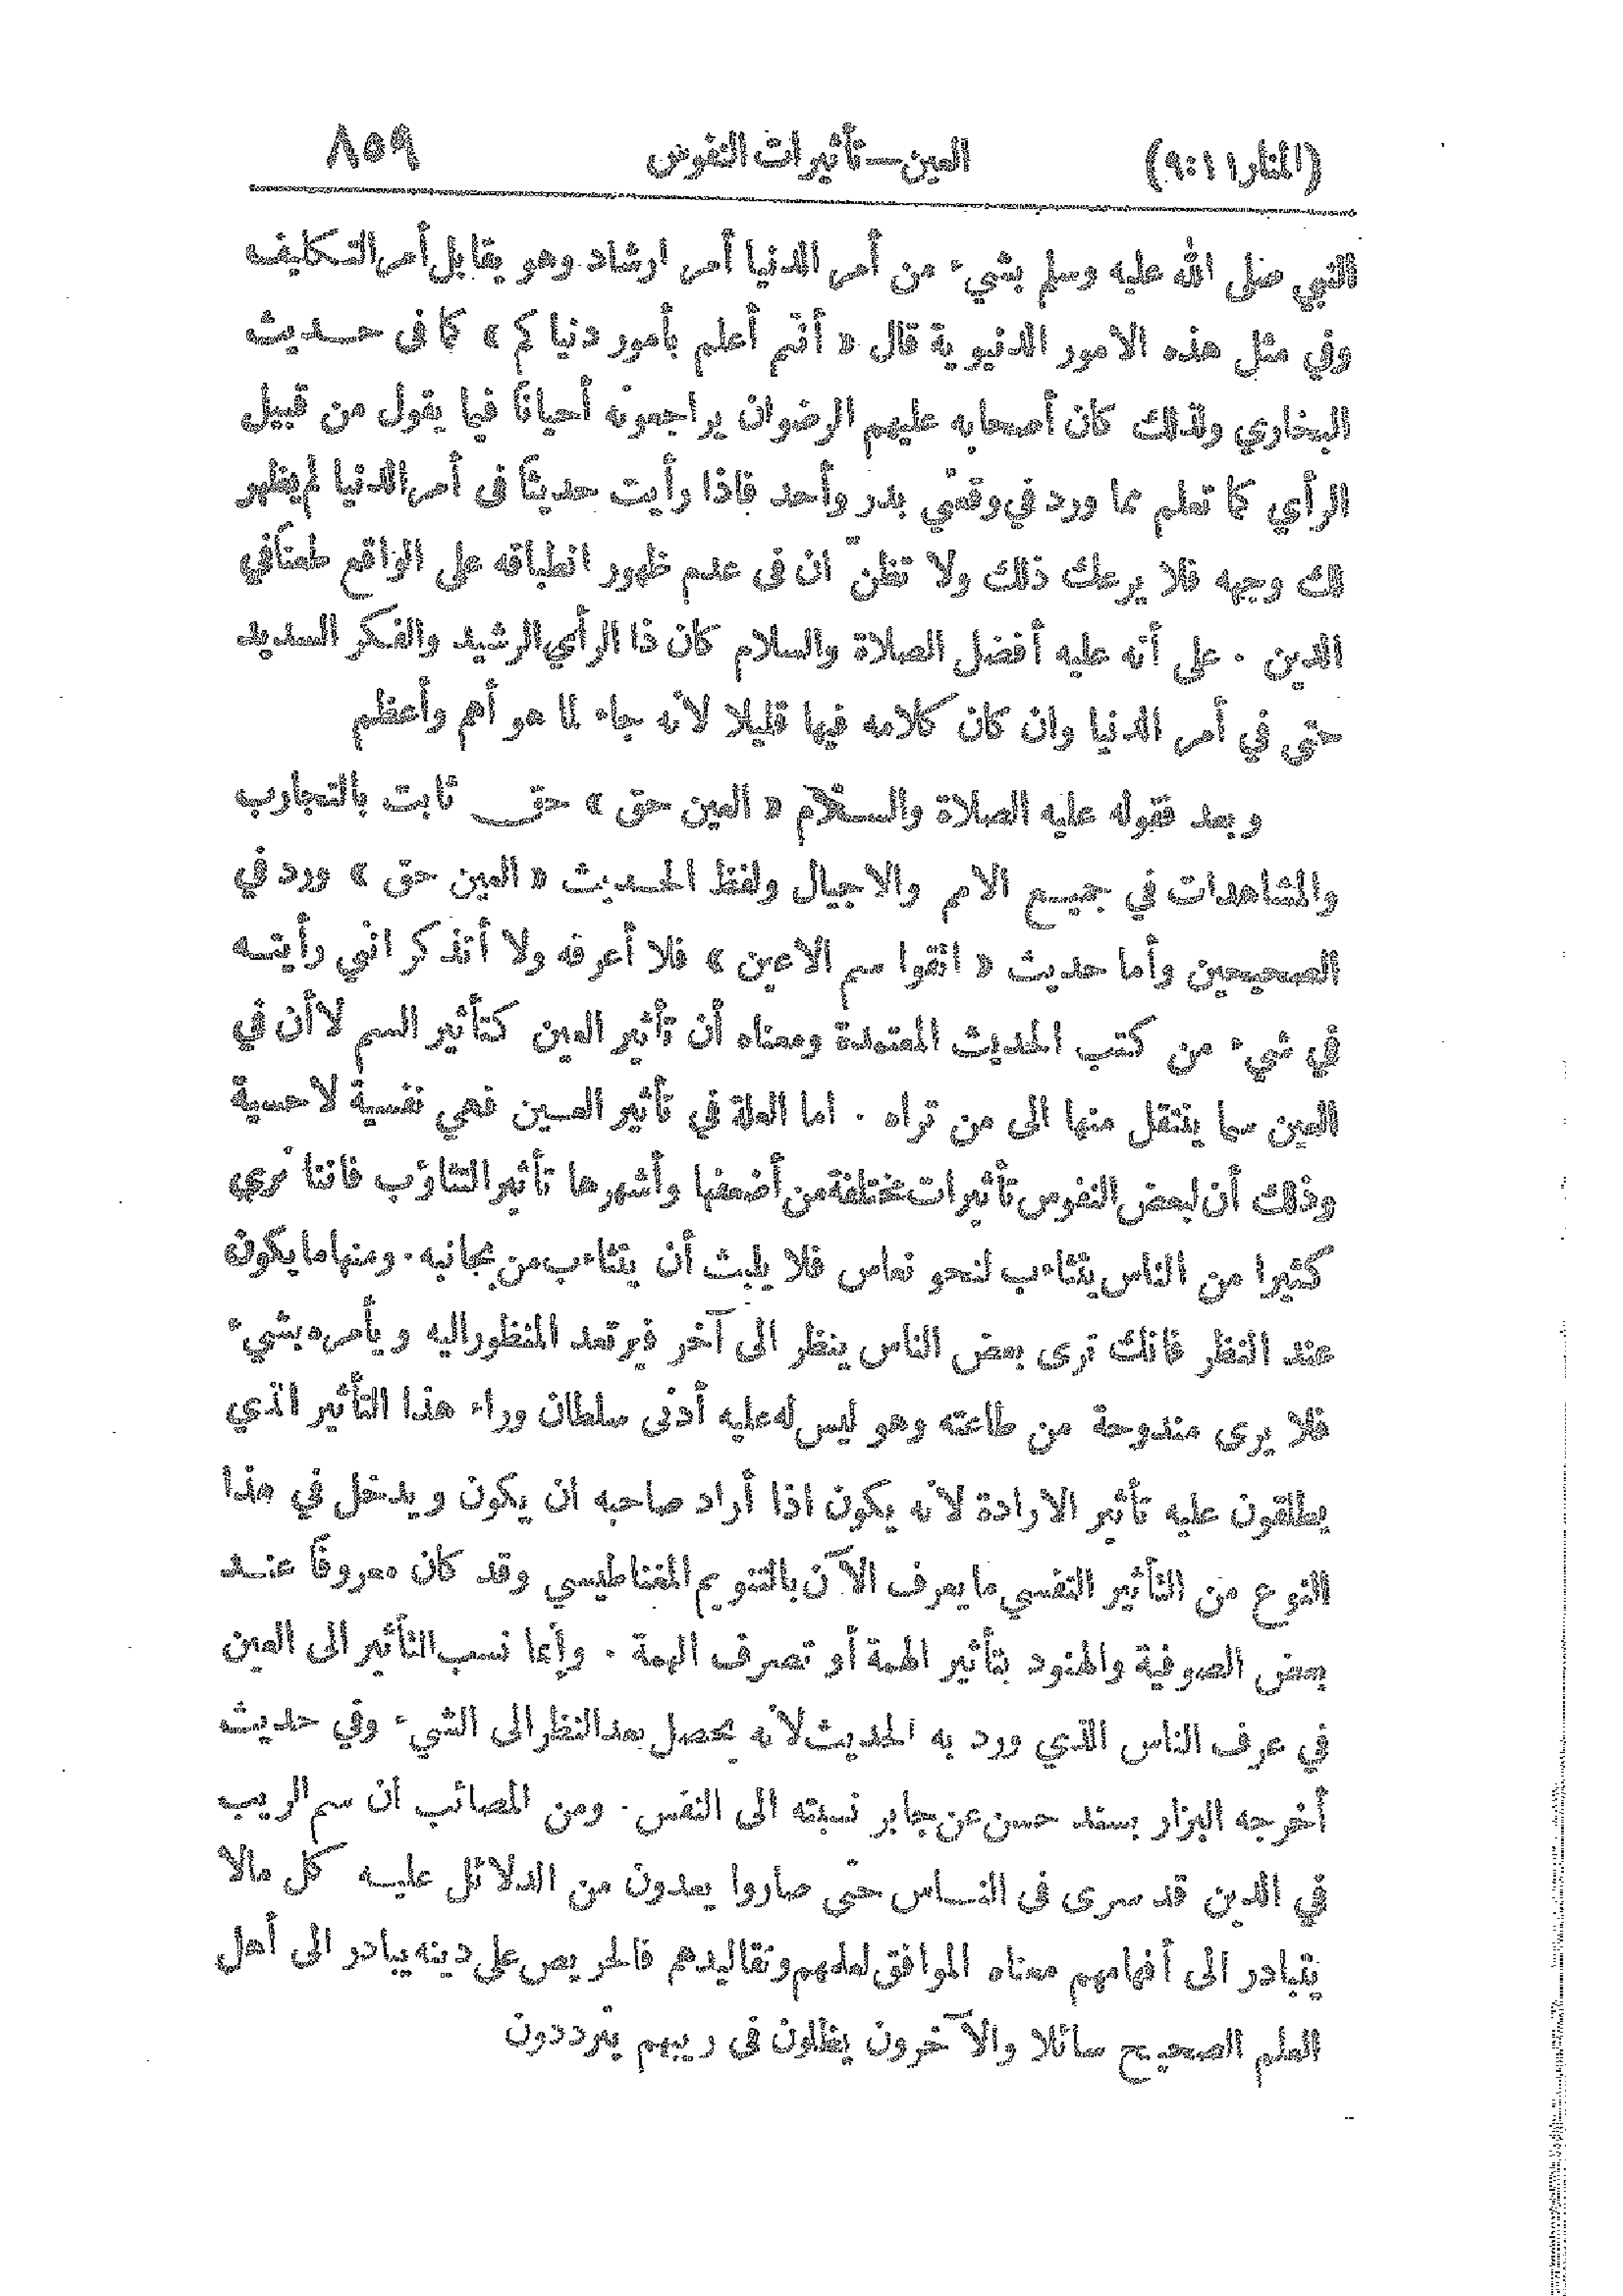 (المنار ١١ : ٩) العين — تأثيرات النفوس ٨٥٩
النبي صلى الله عليه وسلم بشيء من أمر الدنيا أمر ارشاد وهو يقابل أمر التكليف
وفي مثل هذه الامور الدنيوية قال « أنتم أعلم بأمور دنياكم » كما فى حديث
البخاري ولذلك كان أصحابه عليهم الرضوان يراجعونه أحيانًا فيما يقول من قبيل
الرأي كما تعلم مما ورد في وقعتي بدر وأحد فاذا رأيت حديثًا فى أمر الدنيا لم يظهر
لك وجهه فلا يرعك ذلك ولا تظنّ أن فى عدم ظهور انطباقه على الواقع طعنًا في
الدين . على أنه عليه أفضل الصلاة والسلام كان ذا الرأي الرشيد والفكر السديد
حتى في أمر الدنيا وان كان كلامه فيها قليلا لأنه جاء لما هو أهم وأعظم
وبعد فقوله عليه الصلاة والسلام « العين حق » حق ثابت بالتجارب
والمشاهدات في جميع الامم والاجيال ولفظ الحديث « العين حق » ورد في
الصحيحين وأما حديث « اتقوا سم الاعين » فلا أعرفه ولا أتذكر اني رأيته
في شيء من كتب الحديث المعتمدة ومعناه أن تأثير العين كتأثير السم لا أن في
العين سما ينتقل منها الى من تراه . اما العلة في تأثير العين فهي نفسية لا حسية
وذلك أن لبعض النفوس تأثيرات مختلفة من أضعفها وأشهرها تأثير التثاؤب فاننا نرى
كثيرا من الناس يتثاءب لنحو نعاس فلا يلبث أن يتثاءب من بجانبه . ومنها ما يكون
عند النظر فانك ترى بعض الناس ينظر الى آخر فيرتعد المنظور اليه ويأمره بشيء
فلا يرى مندوحة من طاعته وهو ليس له عليه أدنى سلطان وراء هذا التأثير الذي
يطلقون عليه تأثير الارادة لأنه يكون اذا أراد صاحبه أن يكون ويدخل في هذا
النوع من التأثير النفسي ما يعرف الآن بالتنويم المغناطيسي وقد كان معروفًا عند
بعض الصوفية والهنود بتأثير الهمة أو تصرف الهمة . وإنما نسب التأثير الى العين
في عرف الناس الذي ورد به الحديث لأنه يحصل بعد النظر الى الشيء وفي حديث
أخرجه البزار بسند حسن عن جابر نسبته الى النفس . ومن المصائب أن سم الريب
في الدين قد سرى فى الناس حتى صاروا يعدون من الدلائل عليه كل مالا
يتبادر الى أفهامهم معناه الموافق لعلمهم وتقاليدهم فالحريص على دينه يبادر الى أهل
العلم الصحيح سائلا والآخرون يظلون فى ريبهم يترددون